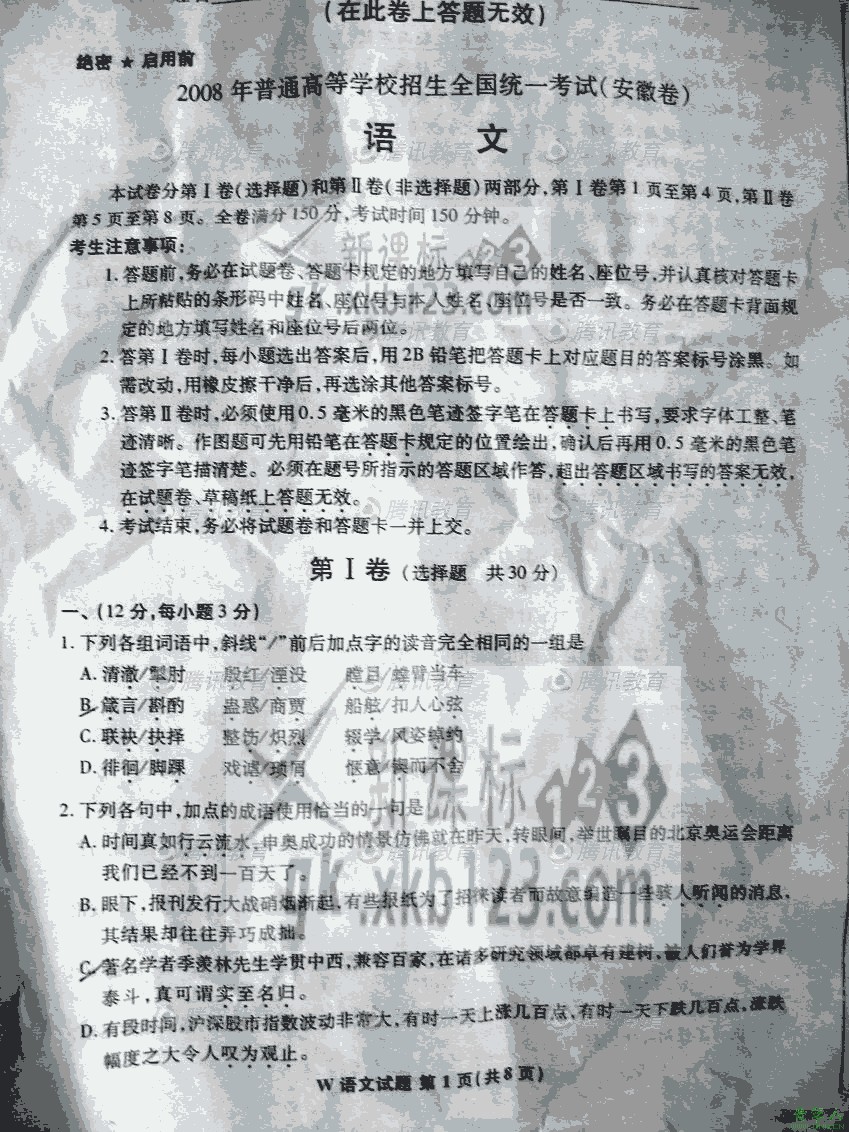 (在此卷上答题无效)
绝密 ★ 启用前
2008 年普通高等学校招生全国统一考试(安徽卷)
语 文
本试卷分第Ⅰ卷(选择题)和第Ⅱ卷(非选择题)两部分,第Ⅰ卷第1页至第4页,第Ⅱ卷
第5页至第8页。全卷满分150分,考试时间150分钟。
考生注意事项:
1. 答题前,务必在试题卷、答题卡规定的地方填写自己的姓名、座位号,并认真核对答题卡
上所粘贴的条形码中姓名、座位号与本人姓名、座位号是否一致。务必在答题卡背面规
定的地方填写姓名和座位号后两位。
2. 答第Ⅰ卷时,每小题选出答案后,用2B铅笔把答题卡上对应题目的答案标号涂黑。如
需改动,用橡皮擦干净后,再选涂其他答案标号。
3. 答第Ⅱ卷时,必须使用0.5毫米的黑色笔迹签字笔在答题卡上书写,要求字体工整、笔
迹清晰。作图题可先用铅笔在答题卡规定的位置绘出,确认后再用0.5毫米的黑色笔
迹签字笔描清楚。必须在题号所指示的答题区域作答,超出答题区域书写的答案无效,
在试题卷、草稿纸上答题无效。
4. 考试结束,务必将试题卷和答题卡一并上交。
第Ⅰ卷(选择题 共30分)
一、(12分,每小题3分)
1. 下列各组词语中,斜线“/”前后加点字的读音完全相同的一组是
A. 清澈/掣肘 殷红/湮没 瞠目/螳臂当车
B. 箴言/斟酌 蛊惑/商贾 船舷/扣人心弦
C. 联袂/抉择 整饬/炽烈 辍学/风姿绰约
D. 徘徊/脚踝 戏谑/琐屑 惬意/锲而不舍
2. 下列各句中,加点的成语使用恰当的一句是
A. 时间真如行云流水,申奥成功的情景仿佛就在昨天,转眼间,举世瞩目的北京奥运会距离
我们已经不到一百天了。
B. 眼下,报刊发行大战硝烟渐起,有些报纸为了招徕读者而故意编造一些骇人听闻的消息,
其结果却往往弄巧成拙。
C. 著名学者季羡林先生学贯中西,兼容百家,在诸多研究领域都卓有建树,被人们誉为学界
泰斗,真可谓实至名归。
D. 有段时间,沪深股市指数波动非常大,有时一天上涨几百点,有时一天下跌几百点,涨跌
幅度之大令人叹为观止。
W 语文试题 第1页(共8页)
腾讯教育
新课标123
gk.xkb123.com